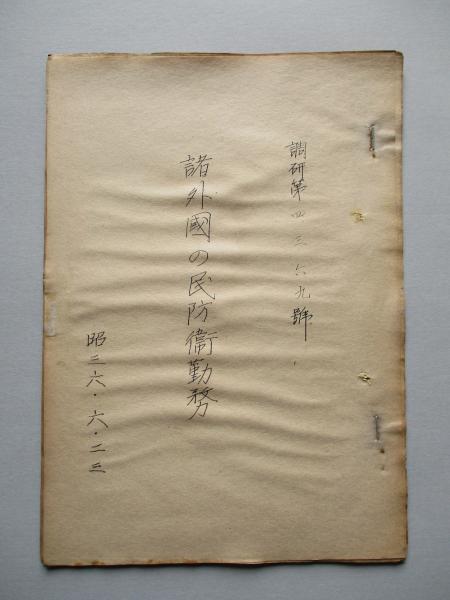 調研第四三六九號
諸外國の民防衞勤務
昭三六・六・二三